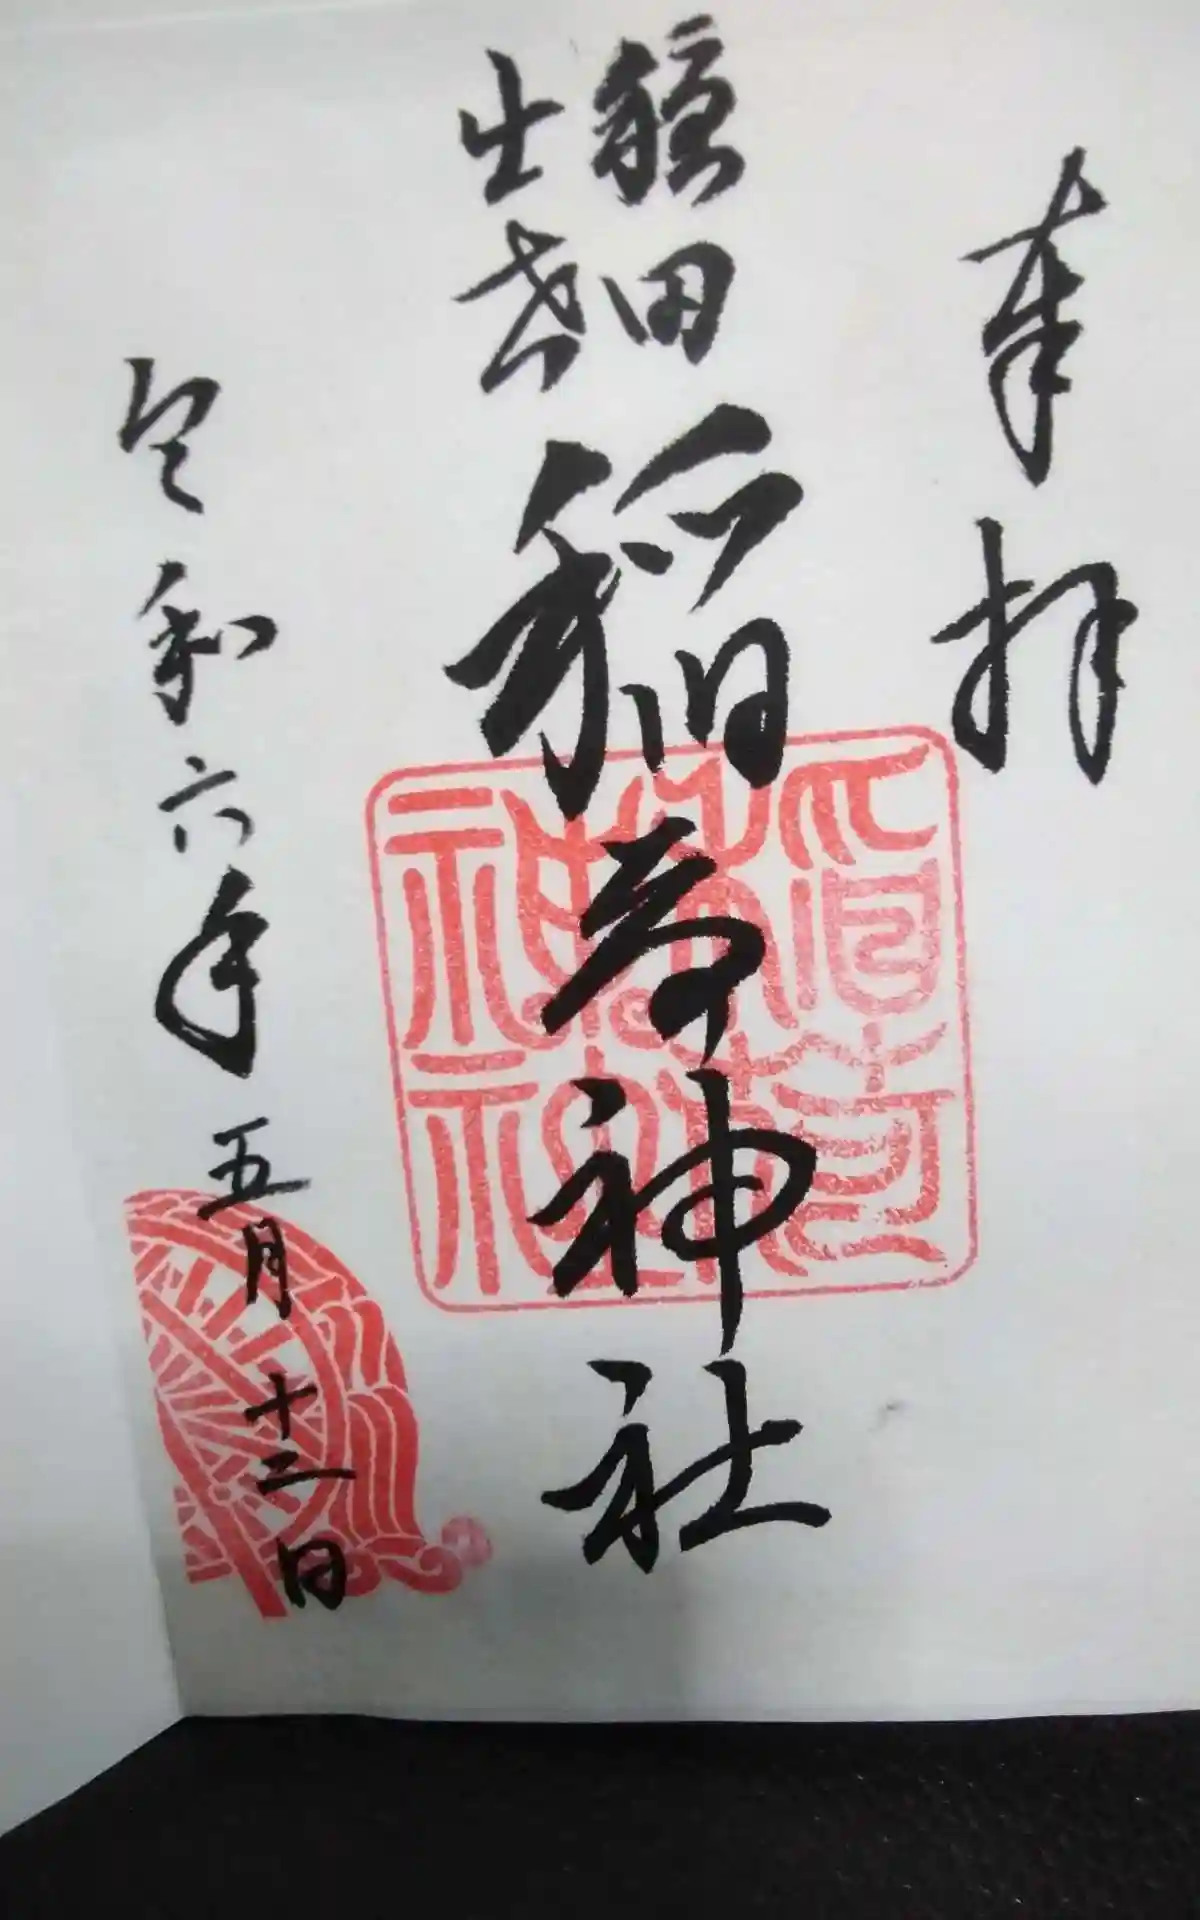 奉拝
田
出世
稲荷神社
令和六年五月十二日